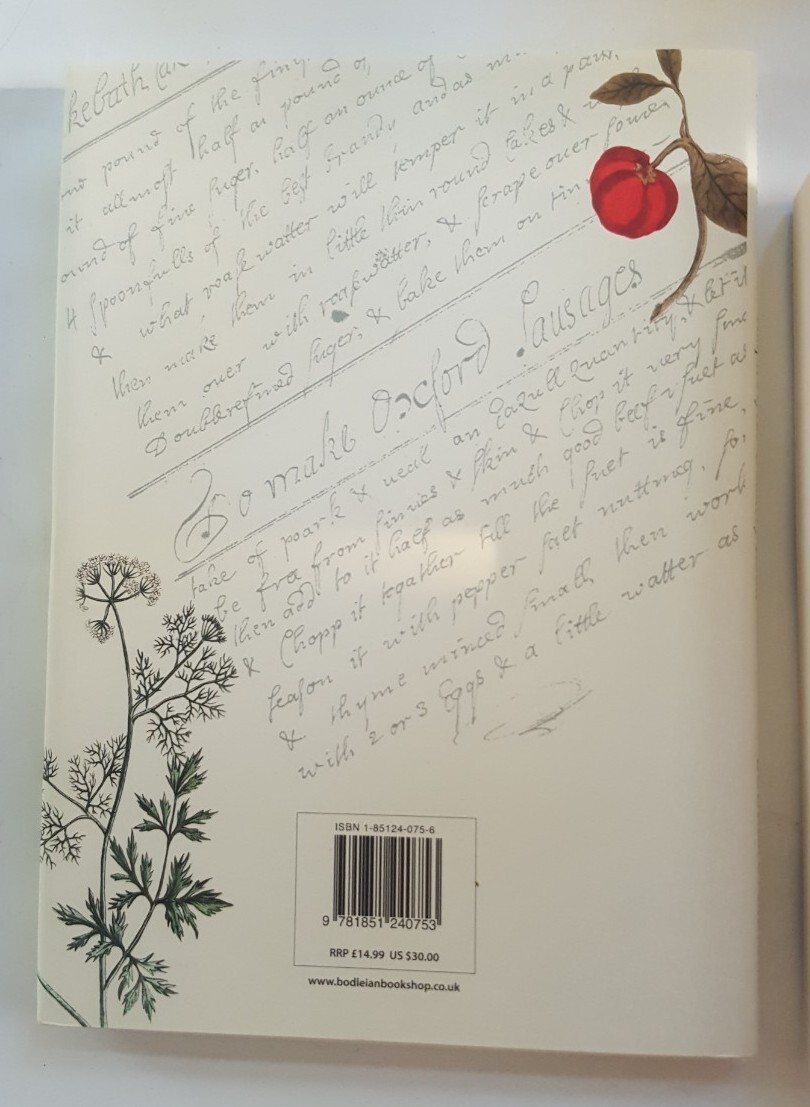 pound of the fing
it allmost half a pound of
ound of fine suger, half an ounce of
4 spoonfulls of the best brandy and as
& what roase watter will temper it in a
then make them in little thin round Cakes &
them over with roasewatter, & scrape over
Doubblerefined suger, & bake them on tin
To make Oxford Sausages
take of poark & veal an Eaquell quantity, & let it
be fra from sinnies & skin & Chop it very fine
then add to it half as much good beef suet as
& Chopp it togather till the suet is fine,
season it with pepper salt nuttmeg,
& thyme minced small then work
with 2 or 3 Eggs & a little watter as
ISBN 1-85124-075-6
9 781851 240753
RRP £14.99 US $30.00
www.bodleianbookshop.co.uk